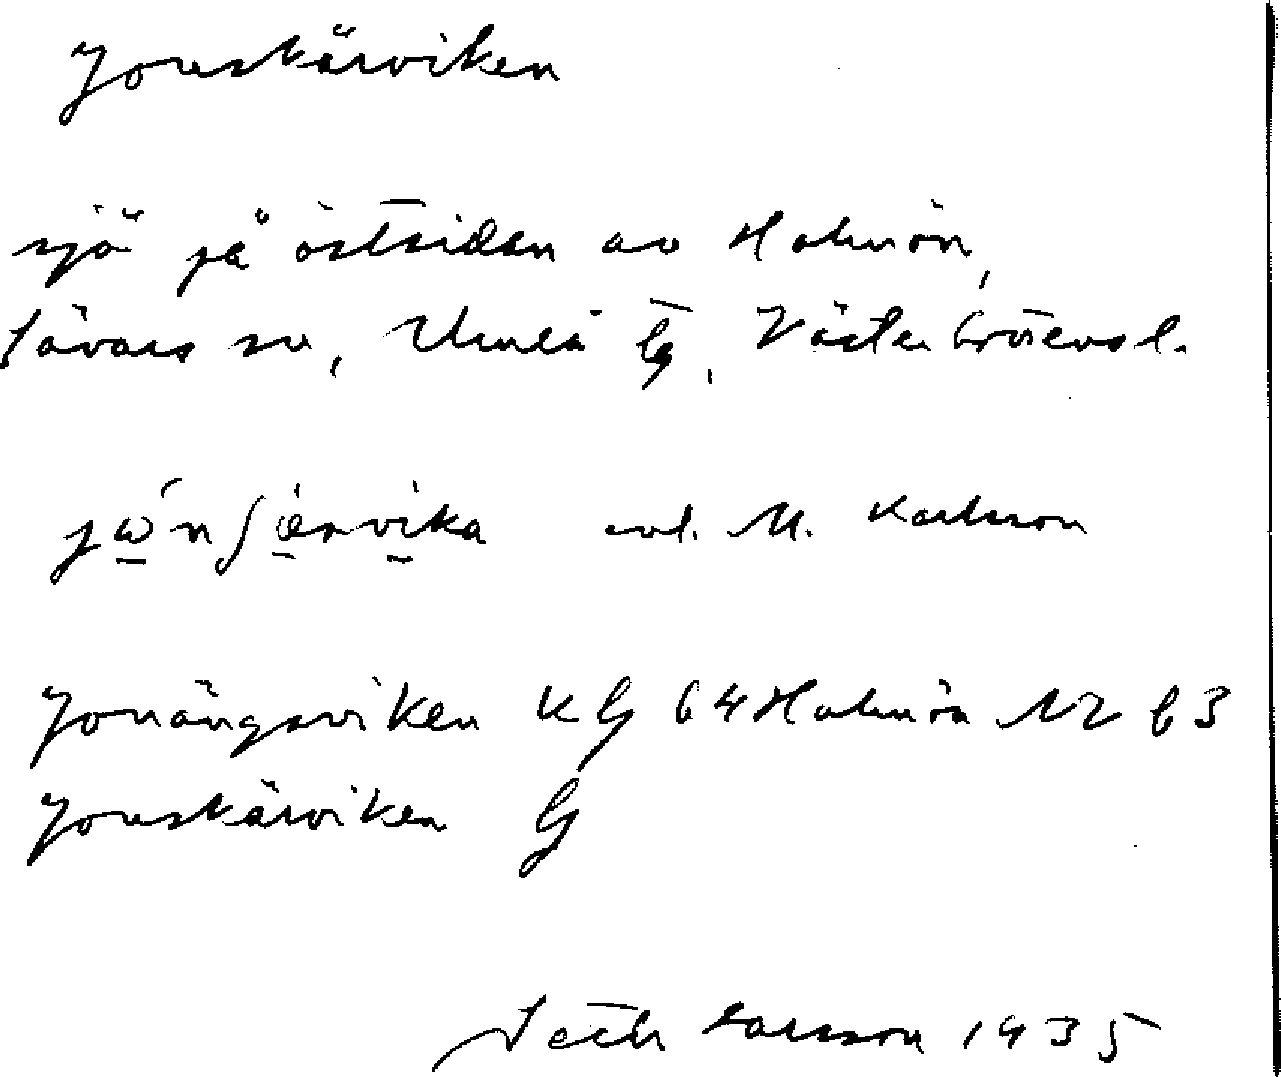 Jonskärviken
sjö på östsidan av Holmön,
Sävars sn, Umeå tg, Västerbottens l.
enl. M. Karlsson
Jonängsviken KG 64 Holmön 12 b 3
Jonskärviken G
Seth Larsson 1935